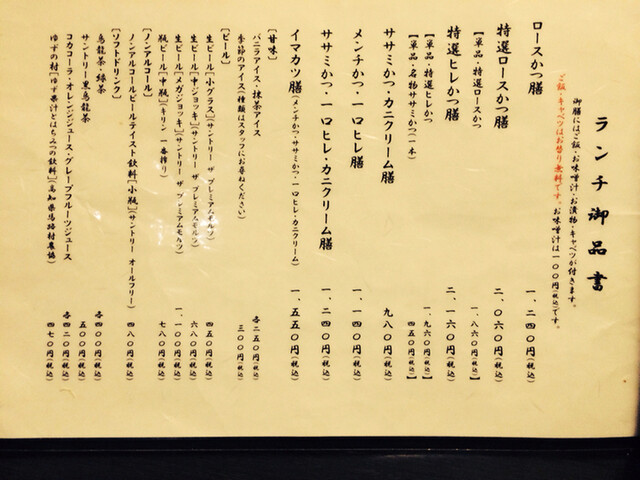 ランチ御品書
御膳にはご飯・お味噌汁・お漬物・キャベツが付きます。
ご飯・キャベツはお替り無料です。お味噌汁は一〇〇円(税込)です。
ロースかつ膳 一、二四〇円(税込)
特選ロースかつ膳 二、〇六〇円(税込)
【単品・特選ロースかつ 一、八六〇円(税込)】
特選ヒレかつ膳 二、一六〇円(税込)
【単品・特選ヒレかつ 一、九六〇円(税込)】
【単品・名物ササミかつ(一本) 四五〇円(税込)】
ササミかつ・カニクリーム膳 九八〇円(税込)
メンチかつ・一口ヒレ膳 一、一四〇円(税込)
ササミかつ・一口ヒレ・カニクリーム膳 一、二四〇円(税込)
イマカツ膳(メンチかつ・ササミかつ・一口ヒレ・カニクリーム) 一、五五〇円(税込)
【甘味】
バニラアイス・抹茶アイス 各二五〇円(税込)
季節のアイス(種類はスタッフにお尋ねください) 三〇〇円(税込)
【ビール】
生ビール[小グラス](サントリー ザ プレミアムモルツ) 四五〇円(税込)
生ビール[中ジョッキ](サントリー ザ プレミアムモルツ) 六八〇円(税込)
生ビール[メガジョッキ](サントリー ザ プレミアムモルツ) 一、一〇〇円(税込)
瓶ビール[中瓶](キリン 一番搾り) 七八〇円(税込)
【ノンアルコール】
ノンアルコールビールテイスト飲料[小瓶](サントリー オールフリー) 四八〇円(税込)
【ソフトドリンク】
烏龍茶・緑茶 各四〇〇円(税込)
サントリー黒烏龍茶 五〇〇円(税込)
コカコーラ・オレンジジュース・グレープフルーツジュース 各四二〇円(税込)
ゆずの村[ゆず果汁とはちみつの飲料](高知県馬路村農協) 四七〇円(税込)